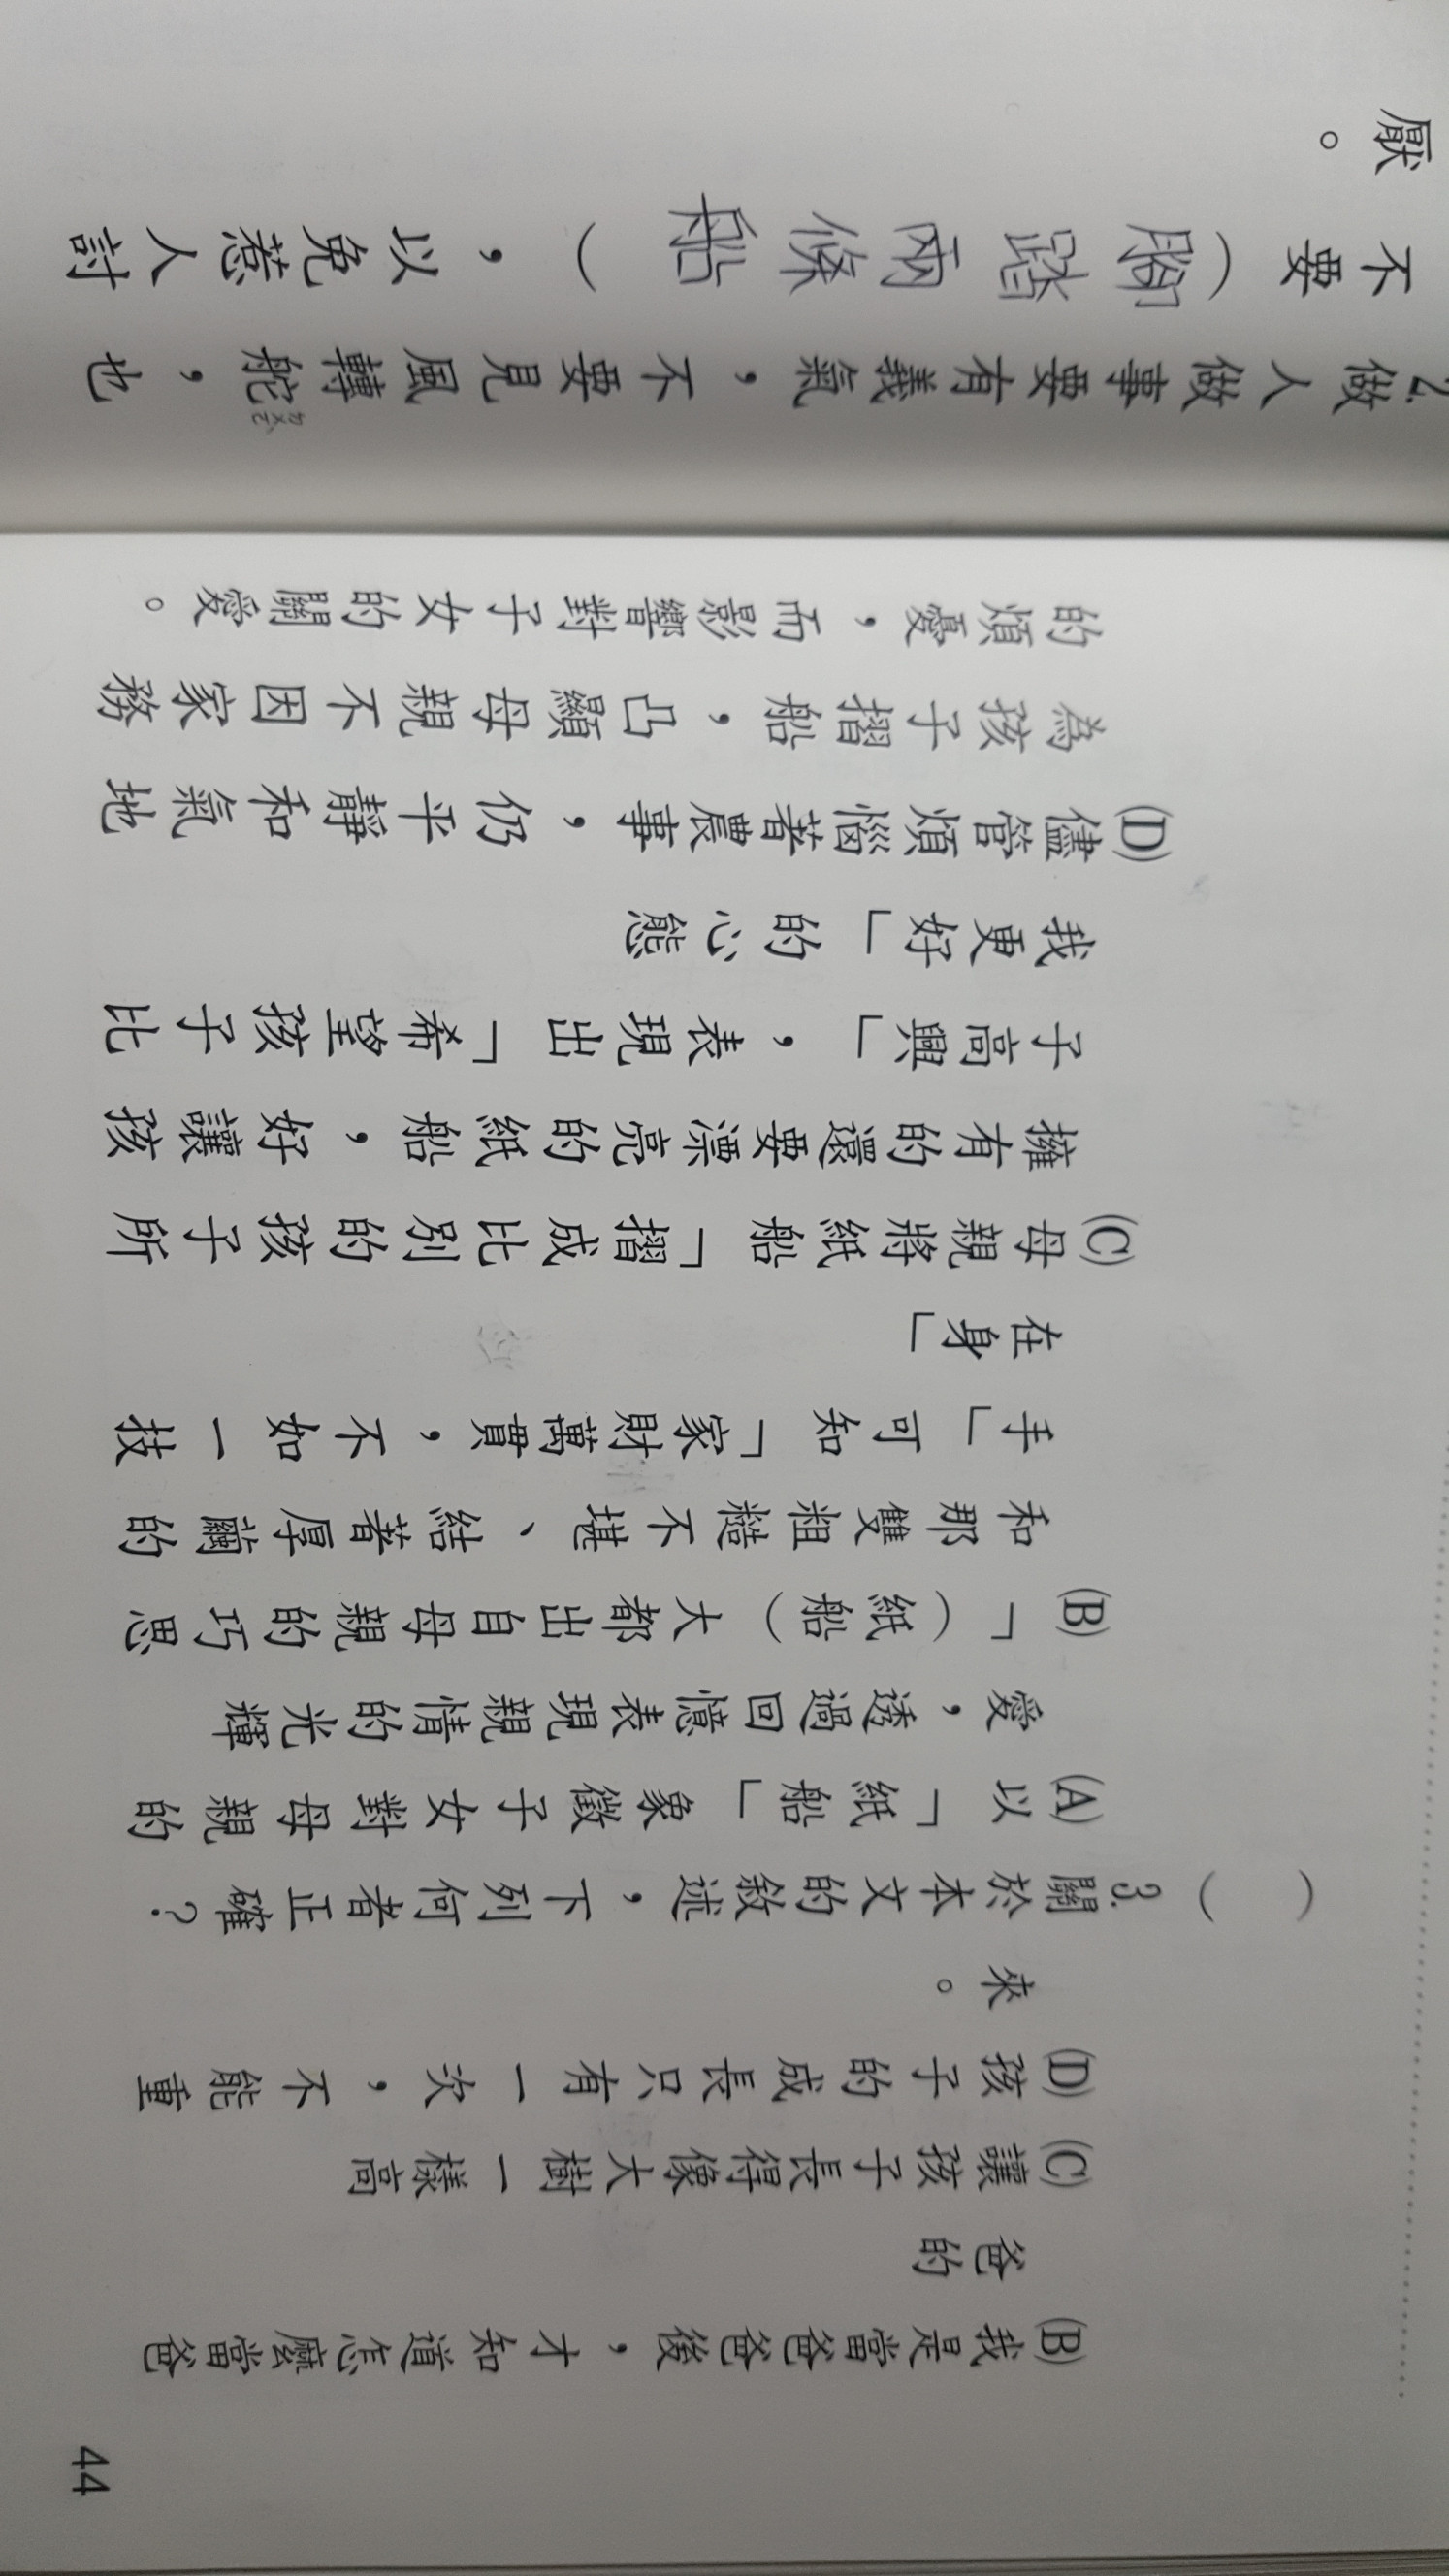 (B)我是當爸爸後，才知道怎麼當爸
爸的
(C)讓孩子長得像大樹一樣高
(D)孩子的成長只有一次，不能重
來。
（　）3.關於本文的敘述，下列何者正確？
(A)以「紙船」象徵子女對母親的
愛，透過回憶表現親情的光輝
(B)「（紙船）大都出自母親的巧思
和那雙粗糙不堪、結著厚繭的
手」可知「家財萬貫，不如一技
在身」
(C)母親將紙船「摺成比別的孩子所
擁有的還要漂亮的紙船，好讓孩
子高興」，表現出「希望孩子比
我更好」的心態
(D)儘管煩惱著農事，仍平靜和氣地
為孩子摺船，凸顯母親不因家務
的煩憂，而影響對子女的關愛。
44
2.做人做事要有義氣，不要見風轉舵，也
不要（腳踏兩條船），以免惹人討
厭。